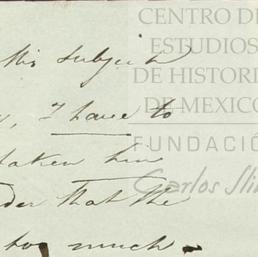 CENTRO DE
ESTUDIOS
DE HISTORI
DE MEXICO
FUNDACIÓ
Carlos Sli
this subject
, I have to
taken him
der that the
too much